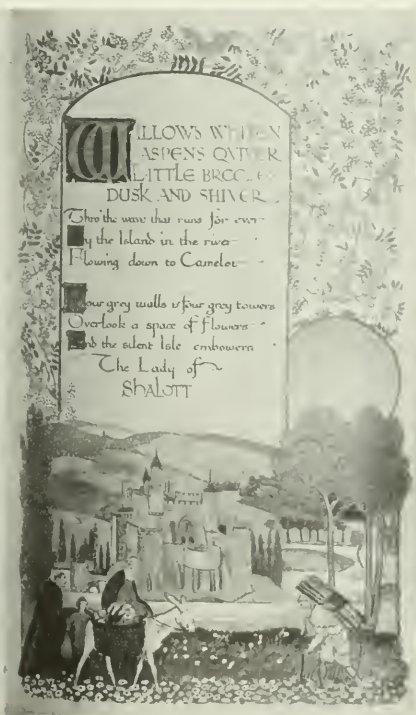 WILLOWS WHITEN
ASPENS QVIVER
LITTLE BREEZES
DUSK AND SHIVER
Thro' the wave that runs for ever
By the Island in the river
Flowing down to Camelot
Four grey walls & four grey towers
Overlook a space of flowers
And the silent Isle embowers
The Lady of
SHALOTT